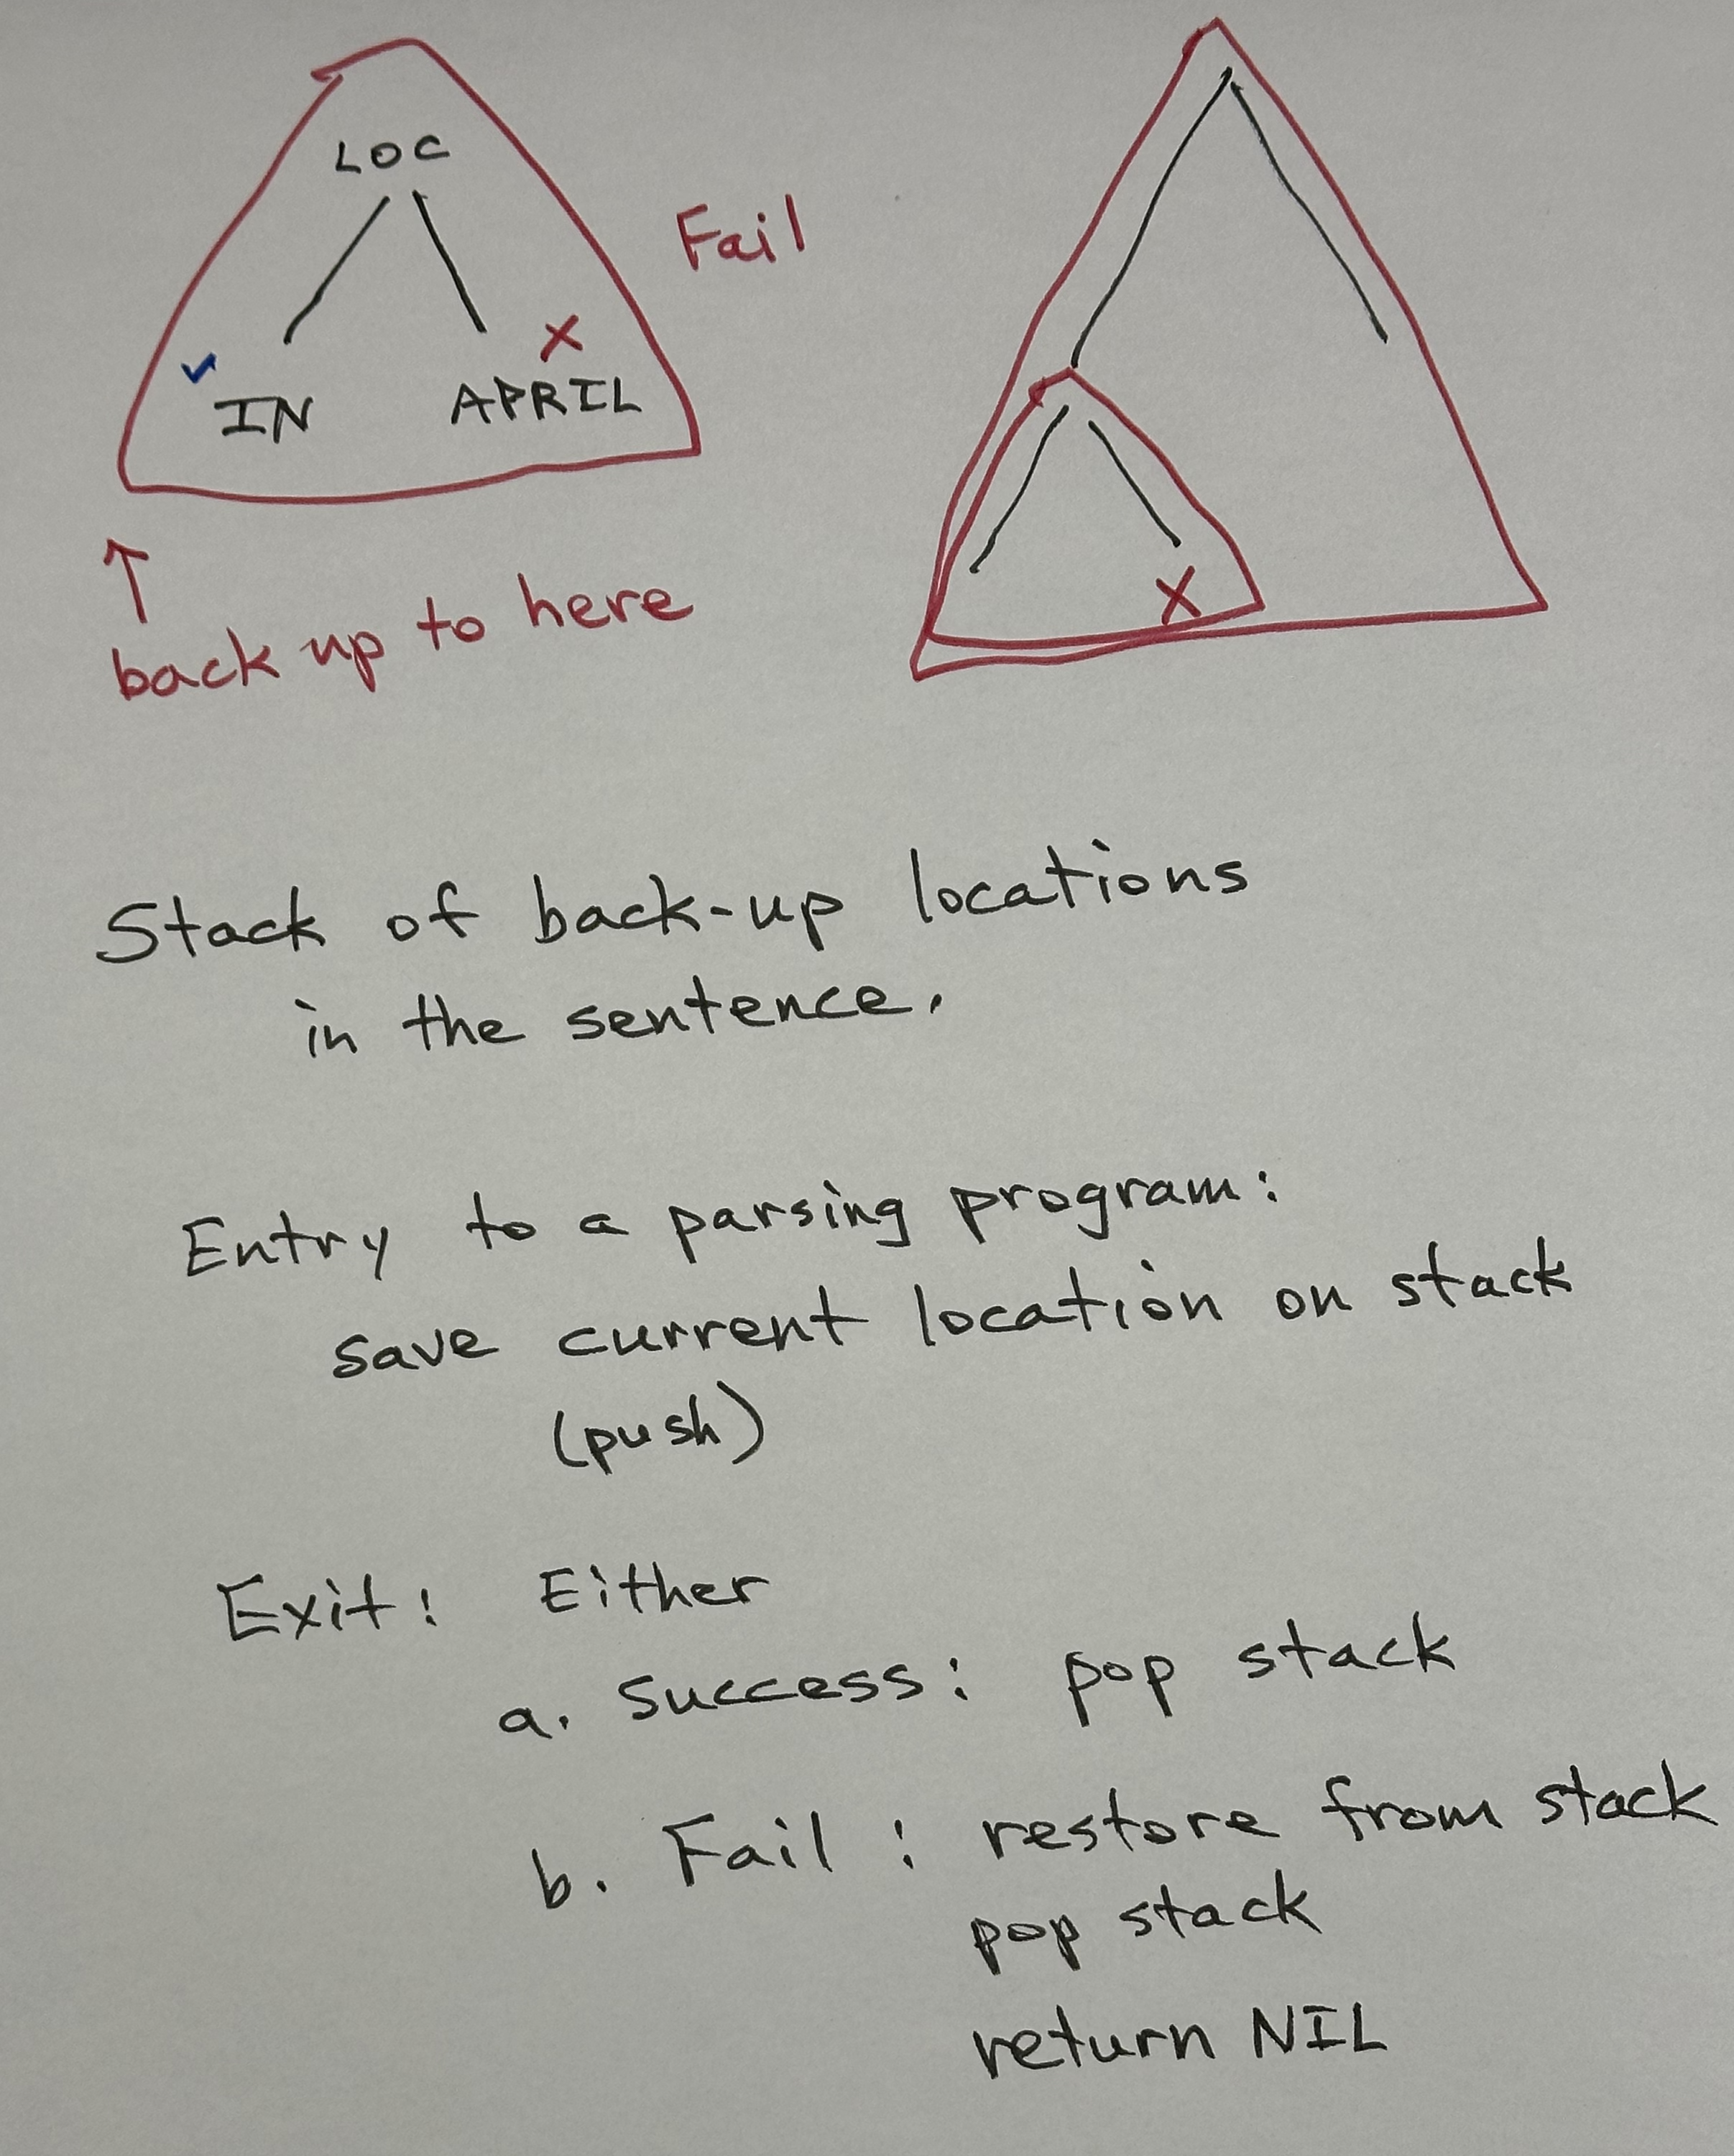 LOC
Fail
✓ X
IN APRIL
↑
back up to here
X
Stack of back-up locations
in the sentence.
Entry to a parsing program:
save current location on stack
(push)
Exit: Either
a. Success: pop stack
b. Fail: restore from stack
pop stack
return NIL